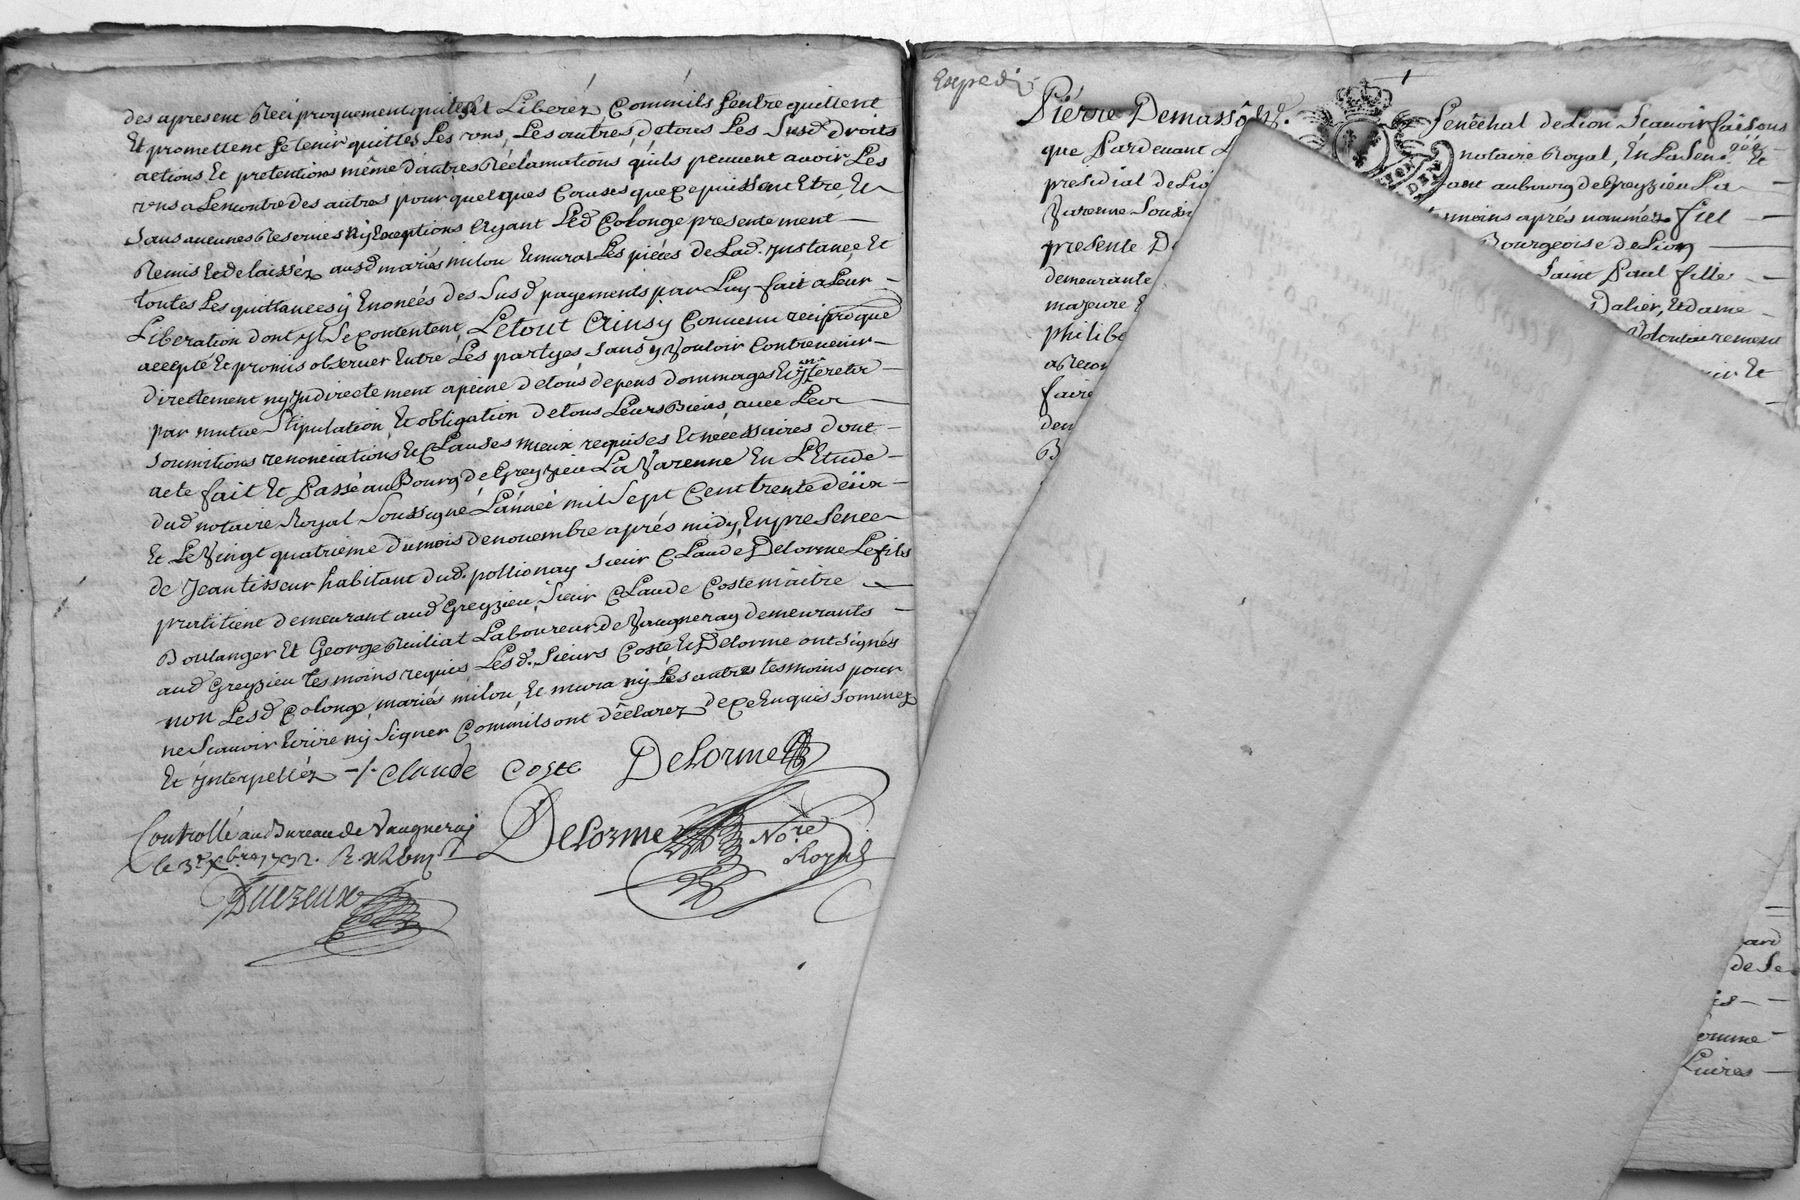 des apresent Reciproquement quittes Et Liberéz Comm'ils sentrequittent
Et promettent setenir quittes Les vns, Les autres, detous Les Susd. droits
actions Et pretentions même d'autres Réclamations qu'ils peuuent auoir Les
vns a Lencontre des autres pour quelques Causes que Ce puissent Etre, Et
sans aucunes Reserues Ny Exceptions Ayant Led Colonge presentement
Remis Et delaisséz ausd mariés milou Et mura Les piéces de Lad. jnstance, Et
toutes Les quittances y Enoncés des Susd payements par Luy fait a Leur
Liberation dont jls Se Contentent, Letout Ainsy Conuenu reciproque
accepté Et promis obseruer Entre Les partyes sans y Vouloir Contreuenir
directement ny jndirectement apeine detous depens dommages Et jnterets
par mutue Stipulation, Et obligation detous Leurs Biens auec Leur
soumitions renonciations Et Clauses mieux requises Et necessaires dont
acte fait Et Passé au Bourg de Greyzieu La Varenne En L'Etude
dud notaire Royal Soussigné L'année mil Sept Cent trente deüx
Et Le Vingt quatrieme du mois denouembre aprés midy, En presence
de Jean tisseur habitant dud. pollionay sieur Claude Delorme Le fils
pratitient demeurant aud Greyzieu, Sieur Claude Coste maitre
Boulanger Et George Ruiliat Laboureur de Vaugneray demeurants
aud Greyzieu tesmoins requis Lesd. Sieurs Coste Et Delorme ont signés
non Lesd Colonge, mariés milou, Et mura ny Les autres tesmoins pour
ne Scauoir Ecrire ny Signer Comm'ils ont déclarez de Ce Enquis Sommez
Et jnterpelléz -/- Claude Coste Delorme
Controllé au Bureau de Vaugneray
le 3e Xbre 1732.
Delorme No.re
Royal
Duezeux
Expedié
Pierre Demassô
Senéchal de Lion Scauoir faisons
que Pardeuant
notaire Royal, En La Sen.
Et
presidial de Lio
ant au bourg de Greyzieu La
Varenne Souss
smoins aprés nomméz fut
presente D
Bourgeoise de Lion
demeurante
Saint Paul fille
majeure E
Dalier, Et dame
philibe
Volontairement
a Recon
Et
faire
and
de Se
omme
Liures